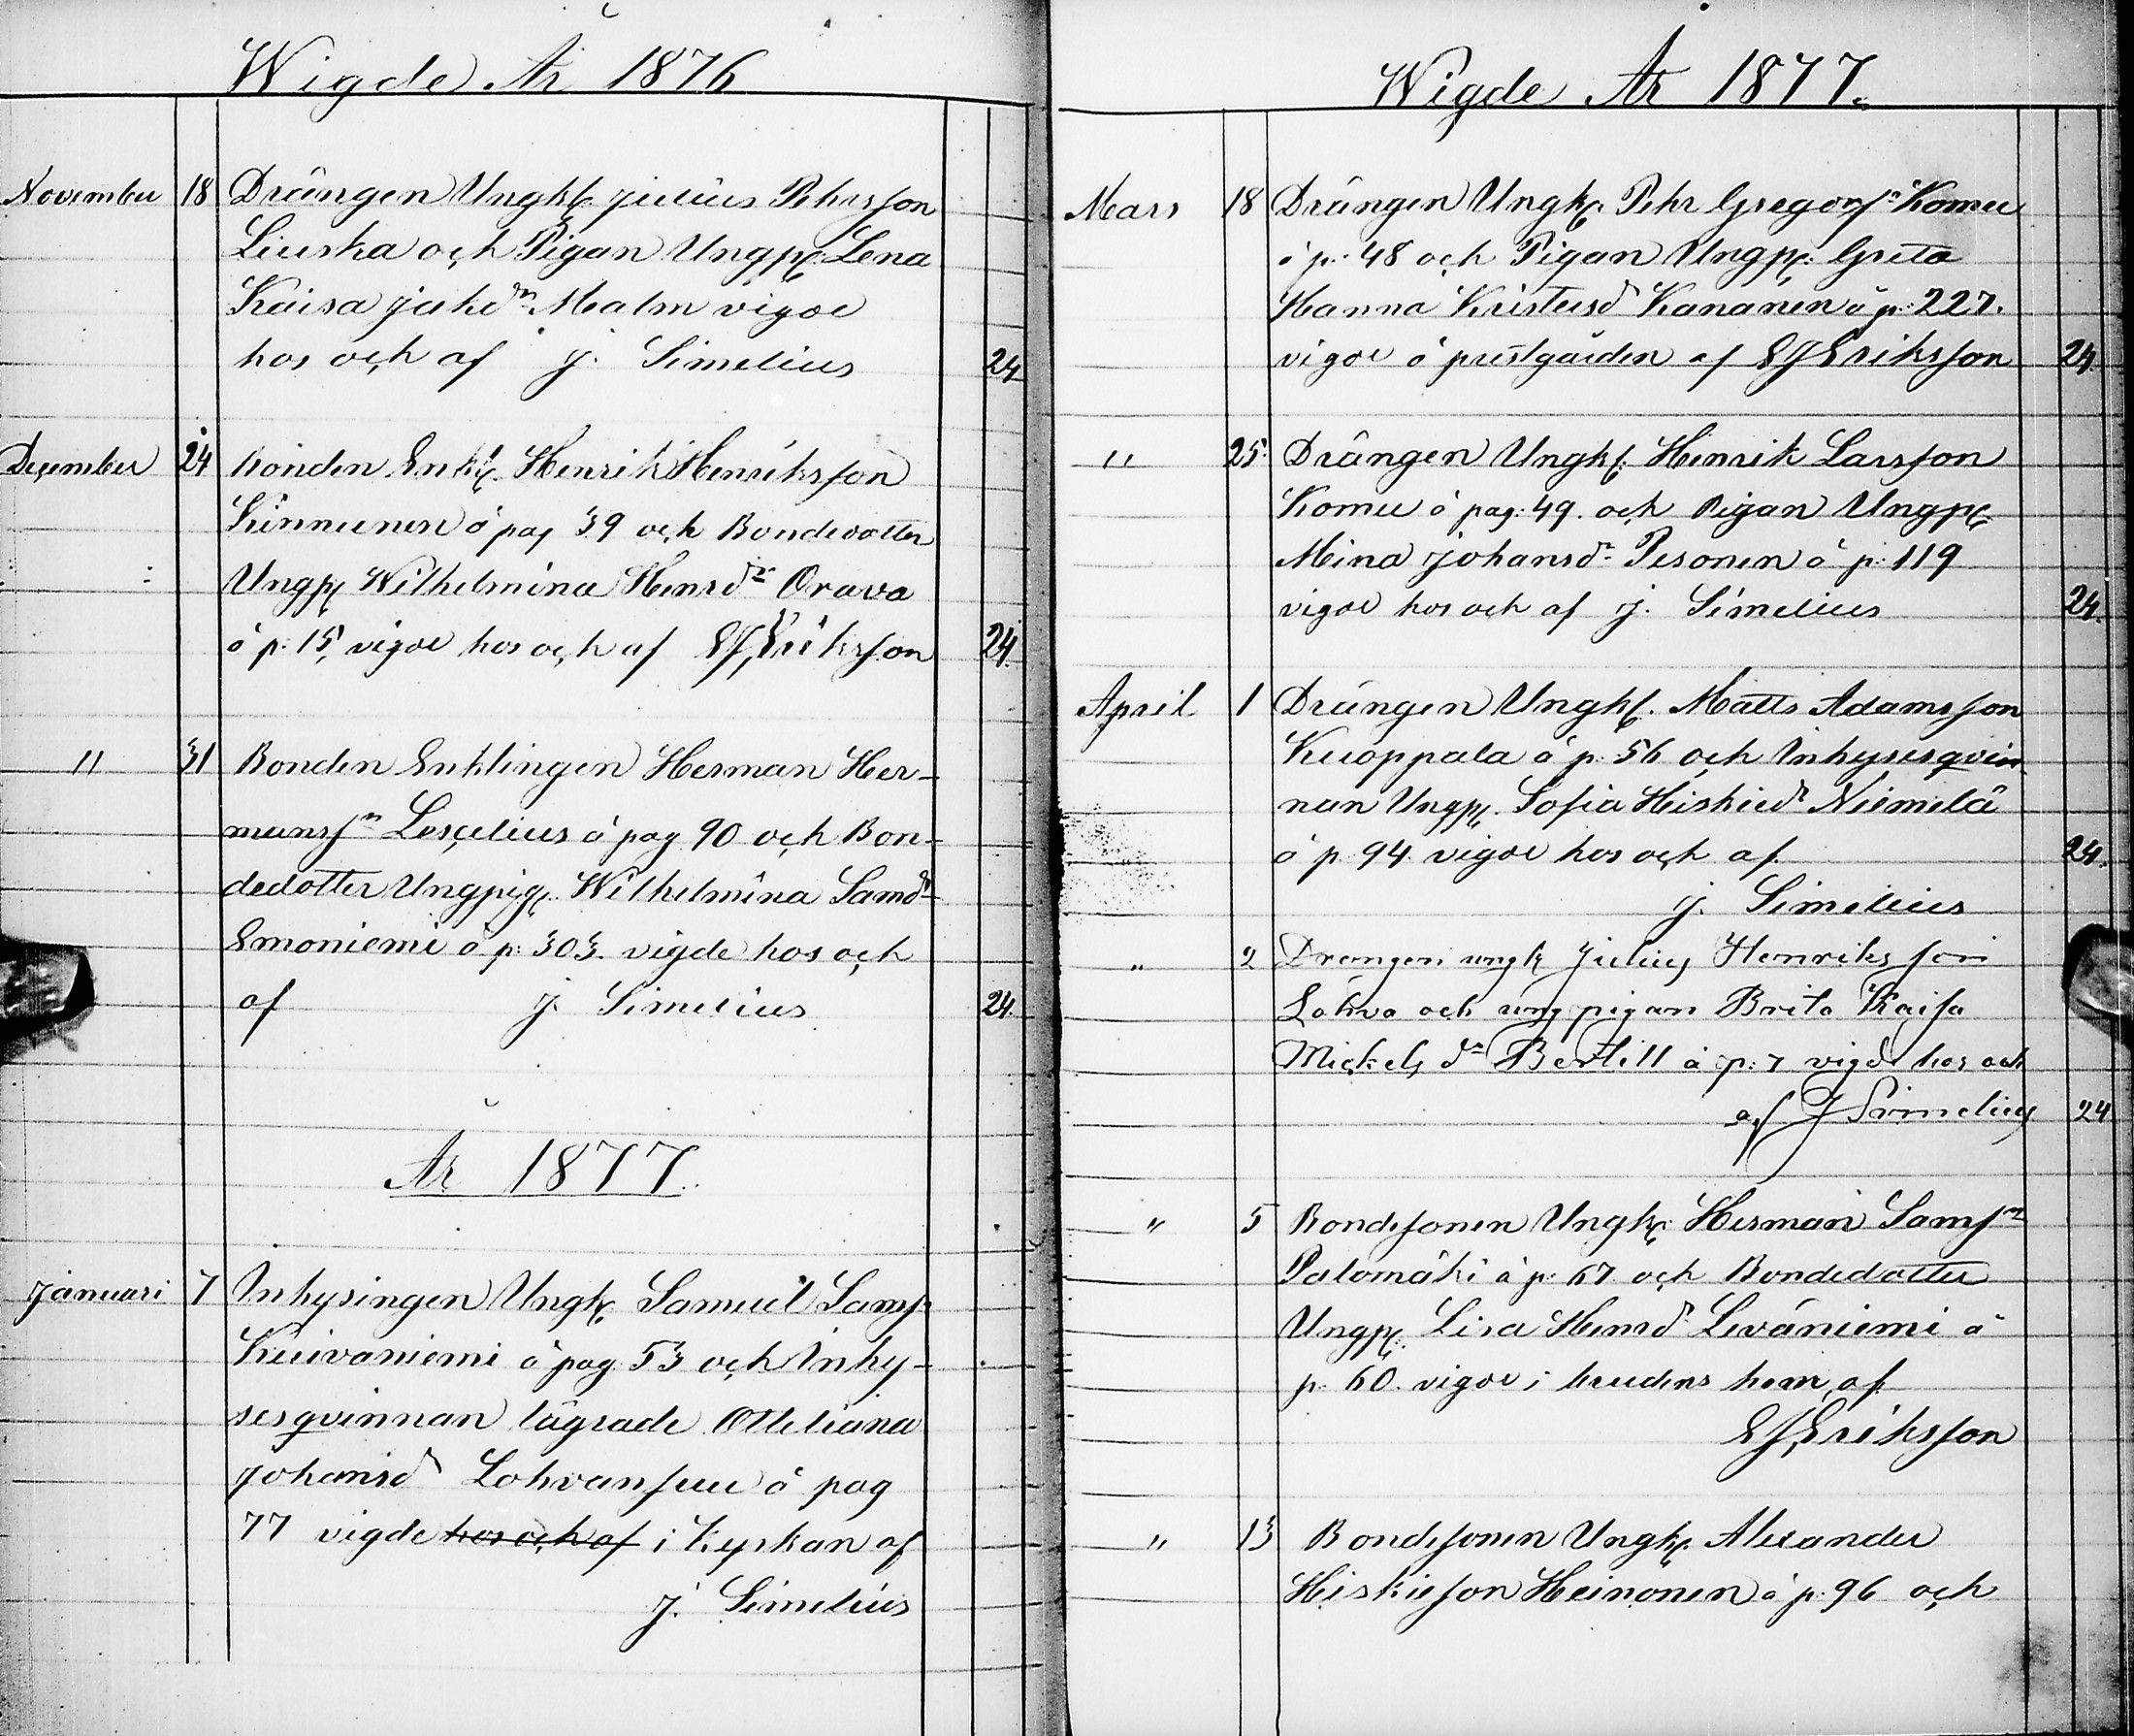 Wigde År 1876
November 18 Drängen Ungk. Julius Pehrsson
Liuska och Pigan Ungp. Lena
Kaisa Jakdr. Malm vigde
hos och af J. Simelius 24
December 24 Bonden Enkl. Henrik Henriksson
Kinnunen å pag 39 och Bondedotter
Ungp. Wilhelmina Hensdr. Orava
å p. 15, vigde hos och af E J Eriksson 24.
" 31 Bonden Enklingen Herman Her-
mansn Lescelius å pag 90 och Bon-
dedotter Ungpig. Wilhelmina Samdr
Emoniemi å p: 303. vigde hos och
af J. Simelius 24.
År 1877.
Januari 7 Inhysingen Ungk. Samuel Sams.
Kuivaniemi å pag. 53 och Inhy-
sesqvinnan lägrade Otteliana
Johansdr Lohvansuu å pag
77 vigde hos och af i Kyrkan af
J. Simelius
Wigde År 1877.
Mars 18 Drängen Ungk. Pehr Gregorsn Komu
å p. 48 och Pigan Ungp. Greta
Hanna Kristersdr Kananen å p: 227.
vigde å prestgården af E J Eriksson 24.
" 25. Drängen Ungk. Henrik Larsson
Komu å pag: 49. och Pigan Ungp.
Mina Johansdr. Pesonen å p: 119
vigde hos och af J. Simelius 24.
April 1 Drängen Ungk. Matts Adamsson
Kuoppala å p: 56 och Inhysesqvin-
nan Ungp. Sofia Heiskiedr Niemelä
å p. 94 vigde hos och af 24.
J. Simelius
" 2 Drengen ungk Julius Henriksson
Lohva och ungpigan Brita Kaisa
Mickelsdr Bertill å p: 7 vigde hos och
af J Simelius 24
" 5 Bondesonen Ungk. Herman Samsn
Palomäki å p: 67 och Bondedotter
Ungp: Lisa Hensdr Leväniemi å
p. 60. vigde i brudens hem af
E J Eriksson
" 13 Bondesonen Ungk. Alexander
Hiskieson Heinonen å p: 96 och